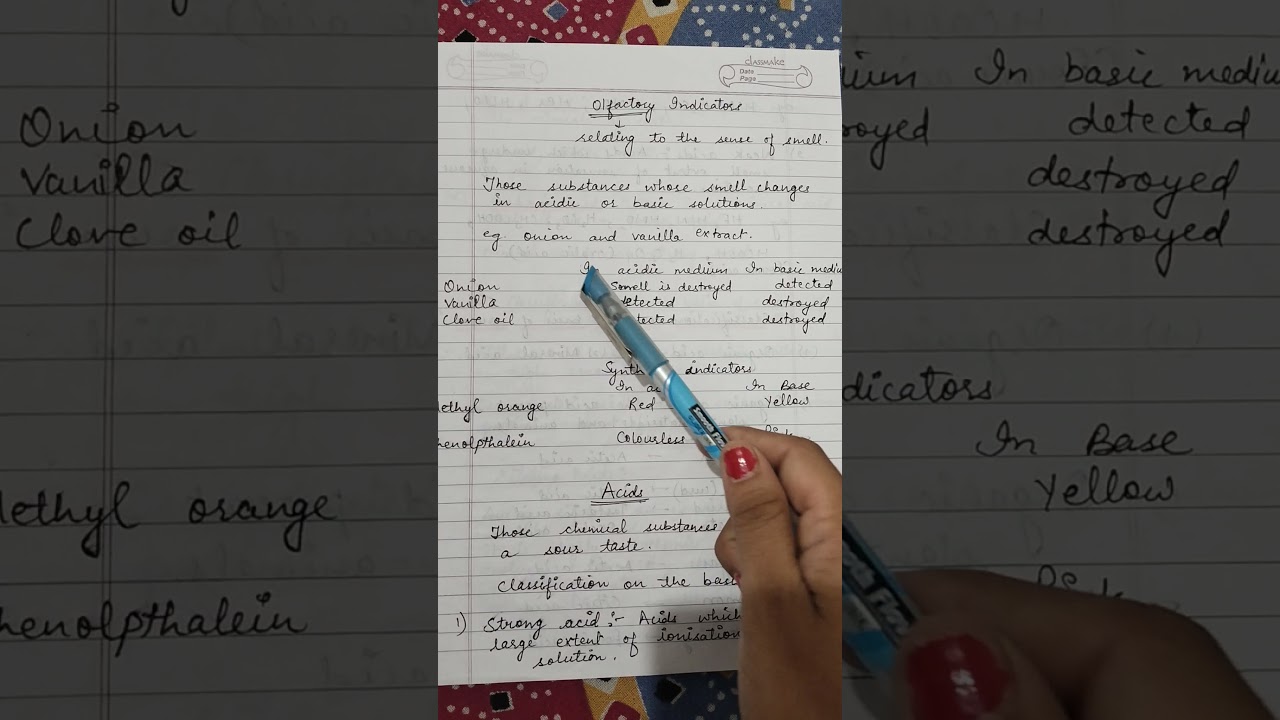 classmate
Date
Page
Olfactory Indicators
relating to the sense of smell.
Those substances whose smell changes
in acidic or basic solutions.
eg. onion and vanilla extract.
In acidic medium In basic mediu
Onion Smell is destroyed detected
Vanilla detected destroyed
Clove oil tected destroyed
Synth indicators
In ac In Base
ethyl orange Red Yellow
henolpthalein Colourless
Acids
Those chemical substances
a sour taste.
Classification on the bas
1) Strong acid :- Acids which
large extent of ionisation
solution.